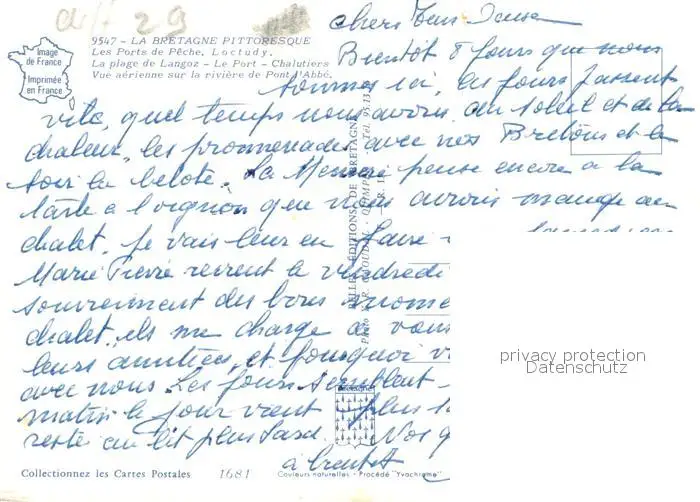 diff 29
9547 - LA BRETAGNE PITTORESQUE
Les Ports de Pêche, Loctudy.
La plage de Langoz - Le Port - Chalutiers
Vue aérienne sur la rivière de Pont l'Abbé.
Image
de France
Imprimée
en France
chers tous
Bientôt 8 jours que nous
sommes ici, les jours passent
vite, quel temps nous avons du soleil et de la
chaleur, les promenades avec nos Bretons et le
soir la belote. La Mémère pense encore a la
tarte a l'oignon que nous avons mangé au
chalet. Je vais leur en faire
Marie Pierre revient le vendredi
souvienment des bons mome
chalet, ils me charge de vous
leurs amitiés, et pourquoi
avec nous. Les jours semblent
matin le jour vient plus
reste au lit plus tard. Nos
à bientôt
Collectionnez les Cartes Postales
1681
Couleurs naturelles - Procédé "Yvachrome"
privacy protection
Datenschutz